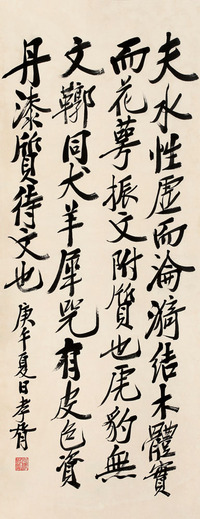 夫水性虛而淪漪結木體實
而花萼振文附質也虎豹無
文鞹同犬羊犀兕有皮色資
丹漆質待文也 庚午夏日孝胥